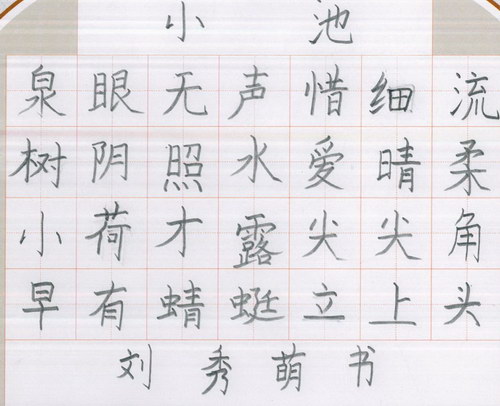 小池
泉眼无声惜细流
树阴照水爱晴柔
小荷才露尖尖角
早有蜻蜓立上头
刘秀萌书